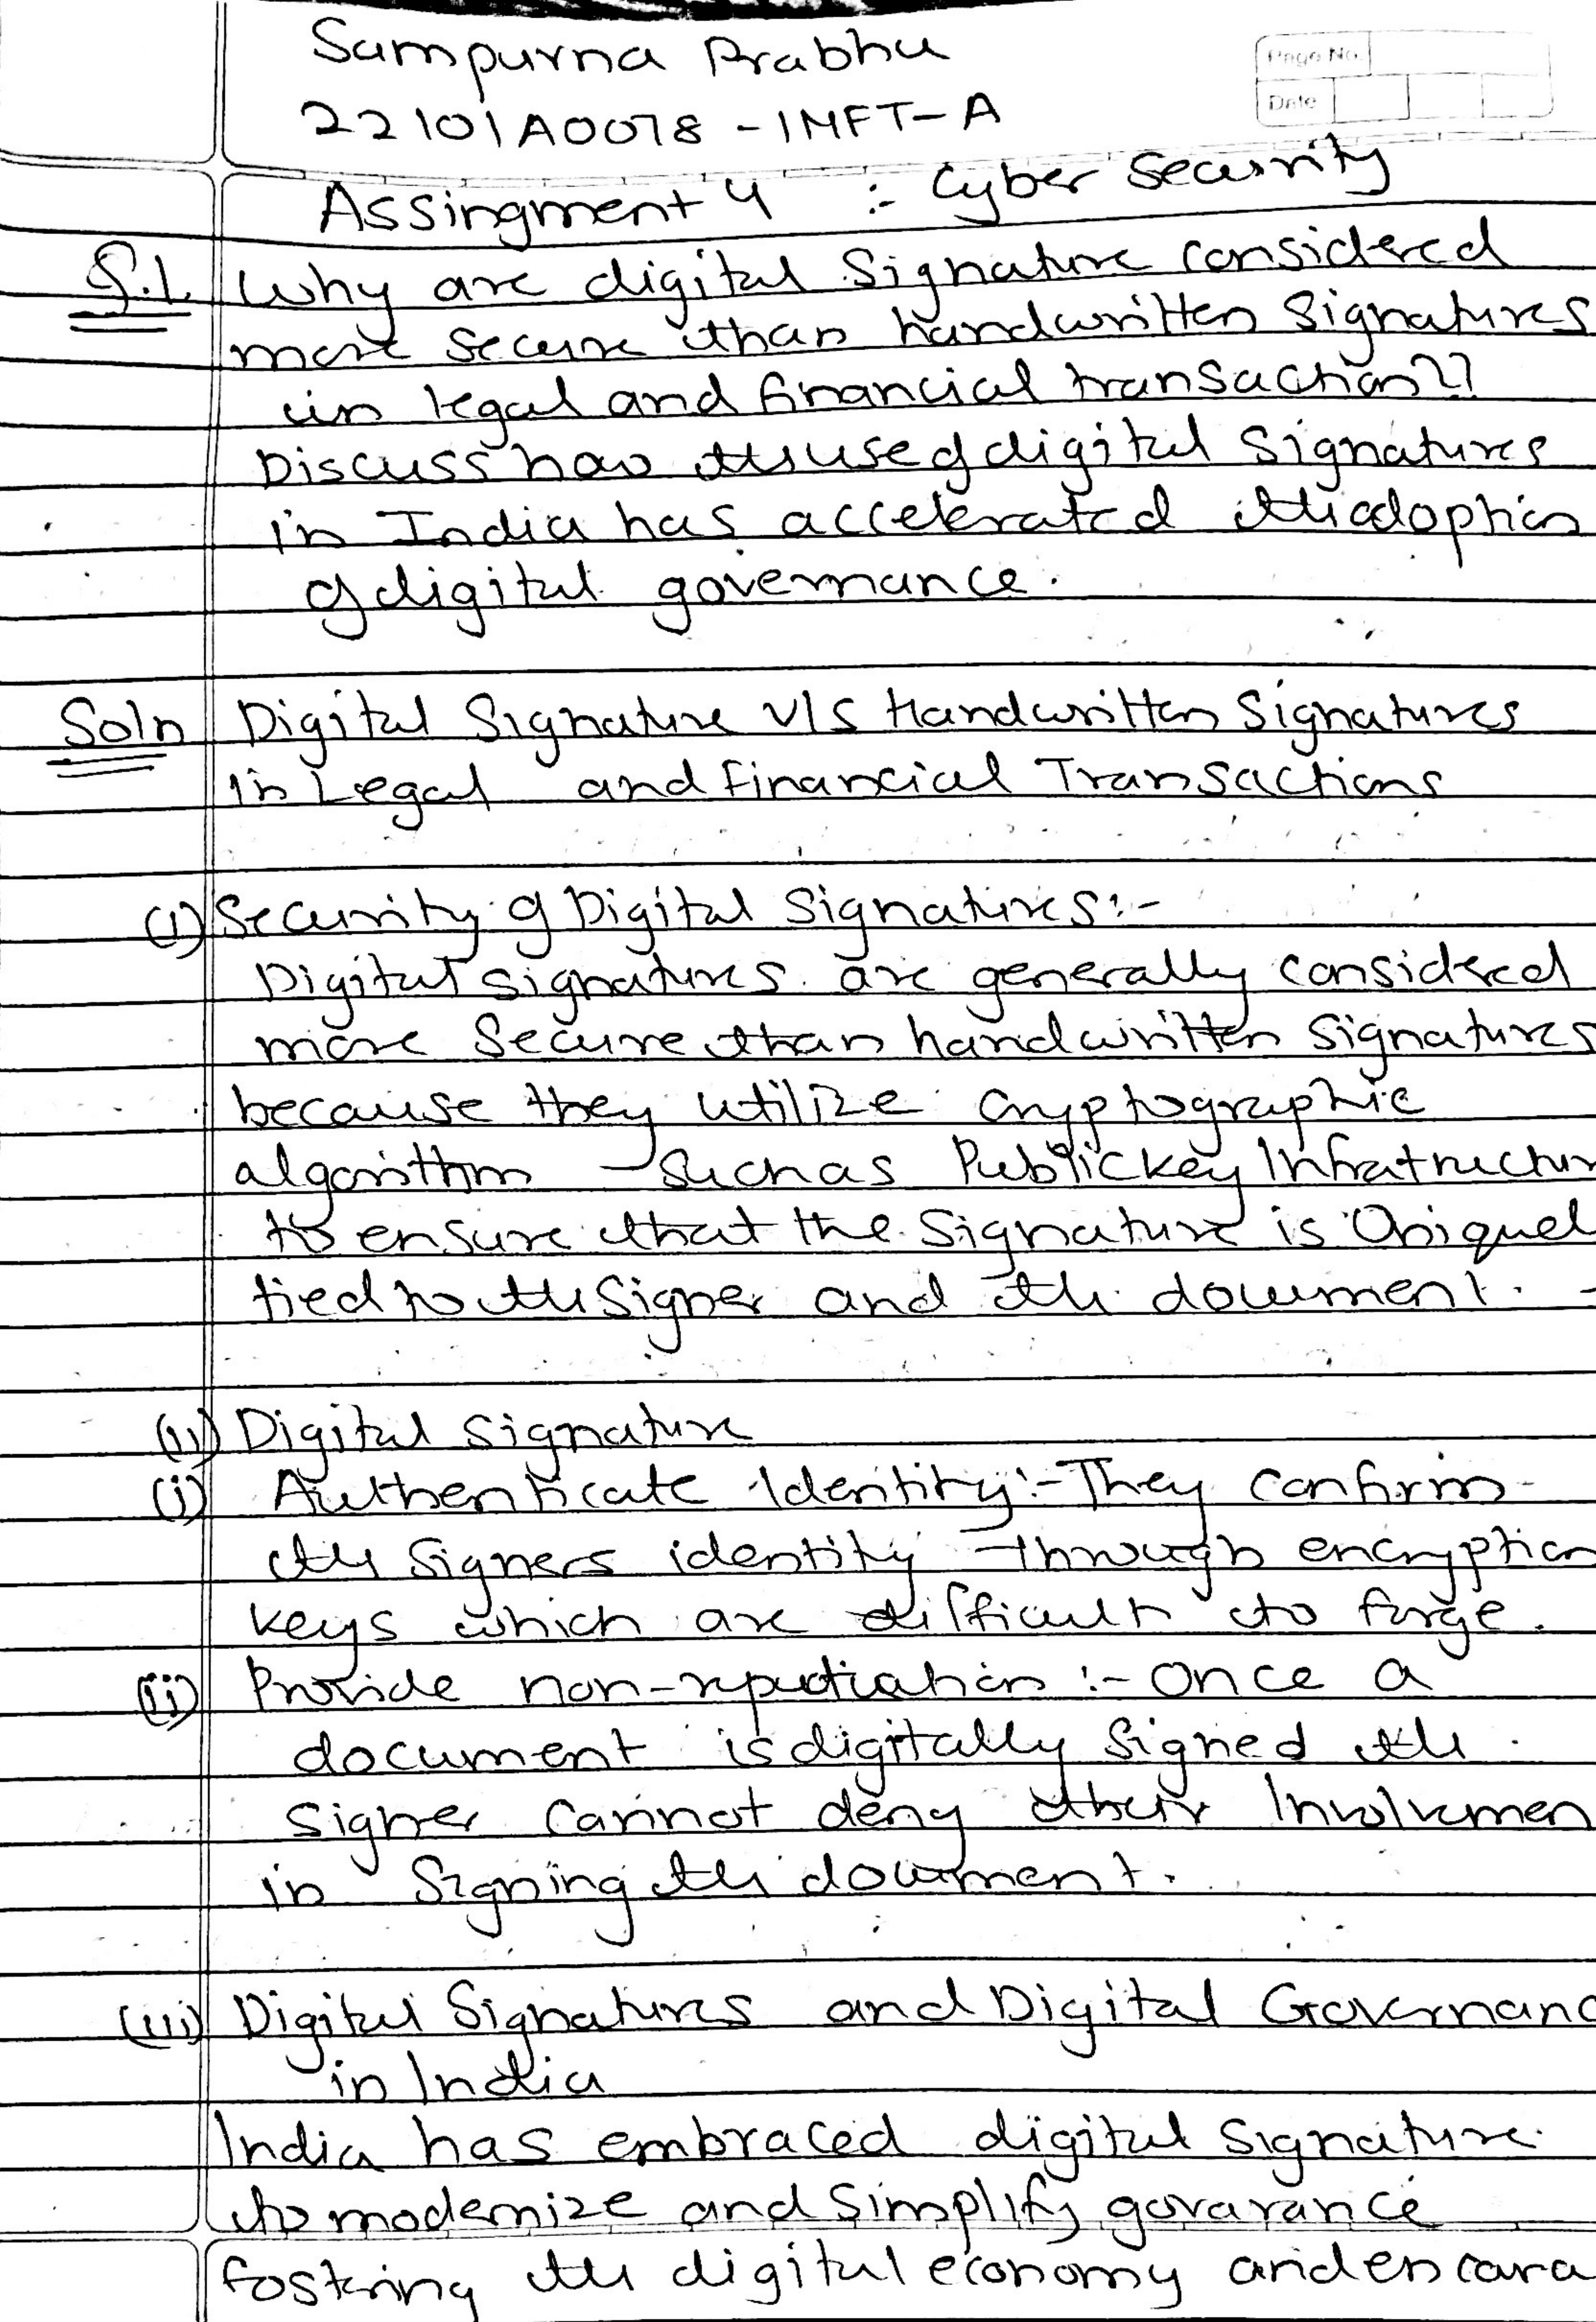 Sampurna Prabhu
Page No.
Date
22101A0078 - INFT-A
Assingment 4 :- Cyber Security
Q.1. Why are digital Signature considered
more secure than handwritten Signatures
in legal and financial transaction??
Discuss how the use of digital Signatures
in India has accelerated the adoption
of digital governance.
Soln Digital Signature V/S Handwritten Signatures
in Legal and Financial Transactions
(i) Security of Digital Signatures:-
Digital signatures are generally considered
more secure than handwritten Signatures
because they utilize cryptographic
algorithm such as Public Key Infratructur
to ensure that the Signature is Uniquel
tied to the Signer and the document.
(ii) Digital Signature
(i) Authenticate Identity:- They confirm
the Signers identity through encryption
keys which are difficult to forge.
(ii) Provide non-repudiation :- Once a
document is digitally Signed the
Signer cannot deny their Involvemen
in Signing the document.
(iii) Digital Signatures and Digital Governanc
in India
India has embraced digital Signature
to modernize and Simplify govarance
fostering the digital economy and encara